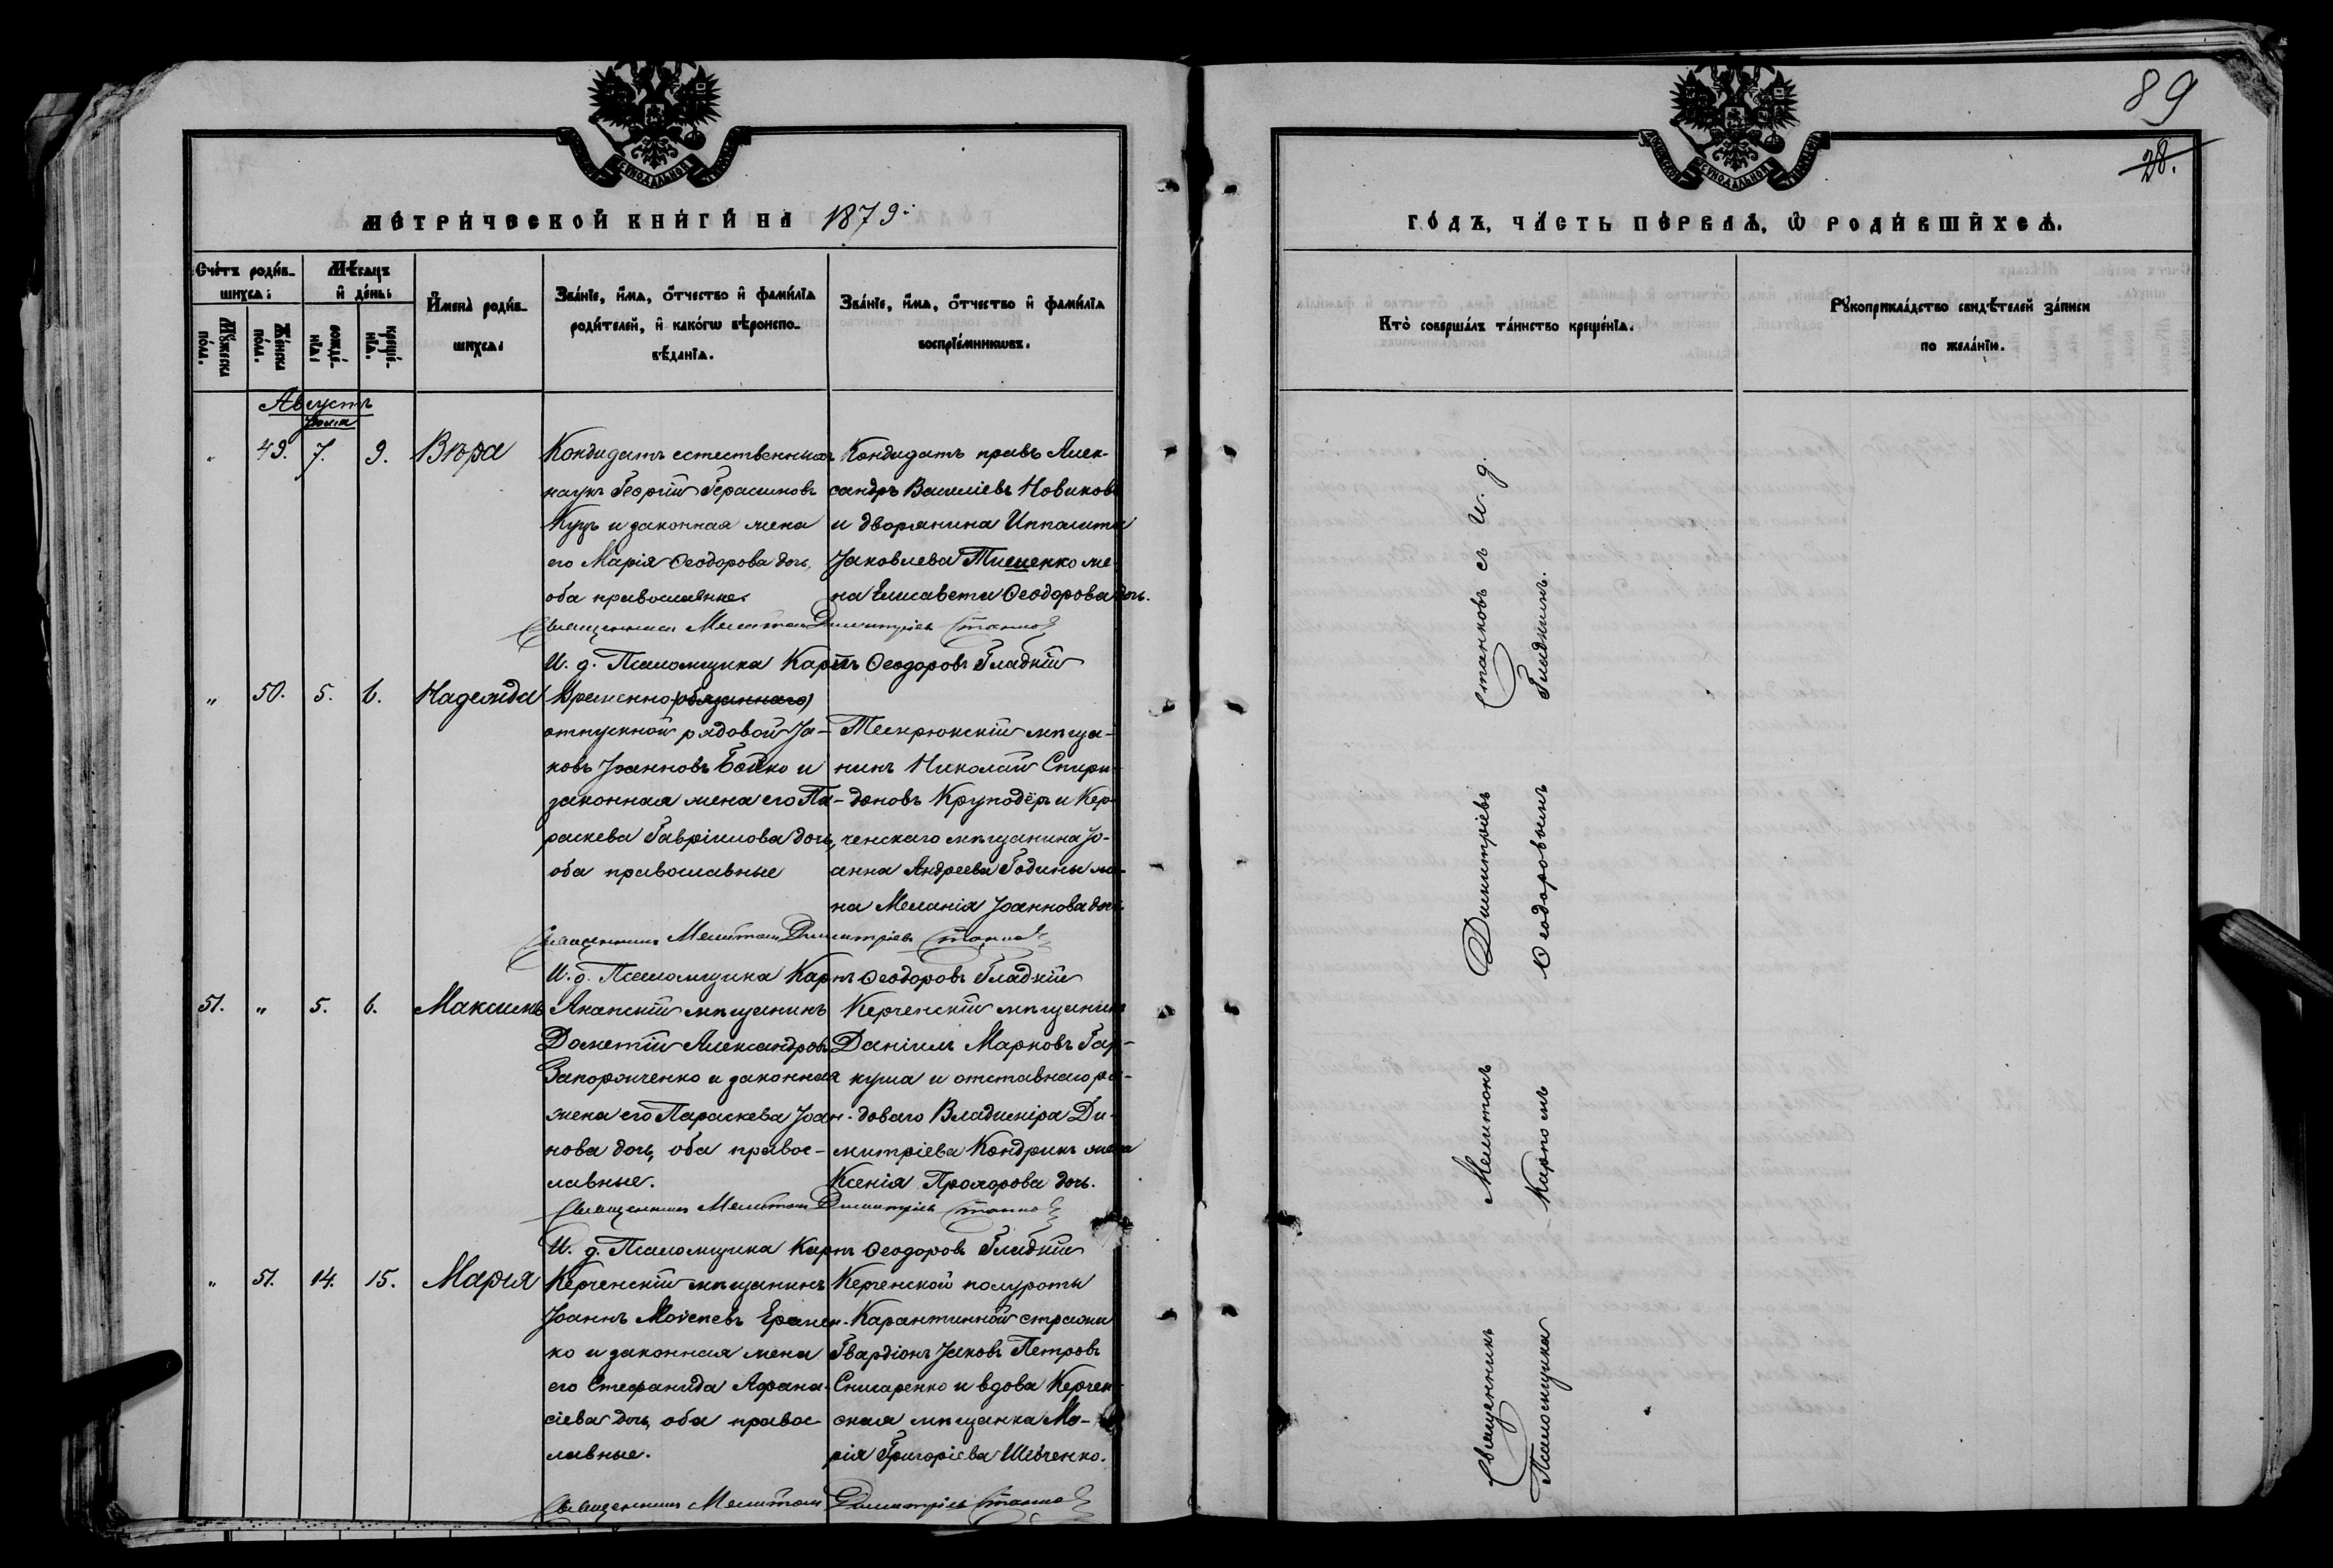 89
28.
МЕТРИЧЕСКОЙ КНИГИ НА 1879.
ГОДЪ, ЧАСТЬ ПЕРВАЯ, Ѡ РОДИВШИХСЯ.
Счетъ родив-
шихся:
Мужеска
пола.
Женска
пола.
Мѣсяцъ
и день:
рожде-
нія:
креще-
нія.
Имена родив-
шихся:
Званіе, имя, отчество и фамилія
родителей, и какогѡ вѣроиспо-
вѣданія.
Званіе, имя, отчество и фамилія
воспріемниковъ.
Кто совершалъ таинство крещенія.
Рукоприкладство свидѣтелей записи
по желанію.
Августъ
"
49.
7.
9.
Вѣра
Кондидатъ естественныхъ
наукъ Георгій Герасимовъ
Куцъ и законная жена
его Марія Ѳеодорова дочь,
оба православные.
Кондидатъ правъ Алек-
сандръ Василіевъ Новиковъ
и дворянина Ипполита
Іаковлева Тищенко же-
на Елисавета Ѳеодорова дочь.
Священникъ Мелитонъ Димитріевъ Станковъ
И. д. Псаломщика Карпъ Ѳеодоровъ Гладкій
"
50.
5.
6.
Надежда
Временно (обязаннаго)
отпускной рядовой Іа-
ковъ Іоанновъ Бойко и
законная жена его Па-
раскева Гавріилова дочь,
оба православные
Темрюкскій мѣща-
нинъ Николай Спири-
доновъ Круподёръ и Кер-
ченскаго мѣщанина Іо-
анна Андреева Годины же-
на Меланія Іоаннова дочь.
Священникъ Мелитонъ Димитріевъ Станковъ
И. д. Псаломщика Карпъ Ѳеодоровъ Гладкій
51.
"
5.
6.
Максимъ
Анапскій мѣщанинъ
Дометій Александровъ
Запорожченко и законная
жена его Параскева Іоан-
нова дочь, оба правос-
лавные.
Керченскій мѣщанинъ
Даніилъ Марковъ Гар-
куша и отставнаго ря-
доваго Владиміра Ди-
митріева Кондрикъ жена
Ксенія Прохорова дочь.
Священникъ Мелитонъ Димитріевъ Станковъ
И. д. Псаломщика Карпъ Ѳеодоровъ Гладкій
"
51.
14.
15.
Марія
Керченскій мѣщанинъ
Іоаннъ Моѵсеевъ Еремен-
ко и законная жена
его Стефанида Афана-
сіева дочь, оба правос-
лавные.
Керченской полуроты
Карантинной стражи
Гвардіонъ Іаковъ Петровъ
Снисаренко и вдова Керчен-
ская мѣщанка Ма-
рія Григоріева Шевченко.
Священникъ Мелитонъ Димитріевъ Станковъ
Священникъ Мелитонъ Димитріевъ Станковъ съ И. д.
Псаломщика Карпомъ Ѳеодоровымъ Гладкимъ.